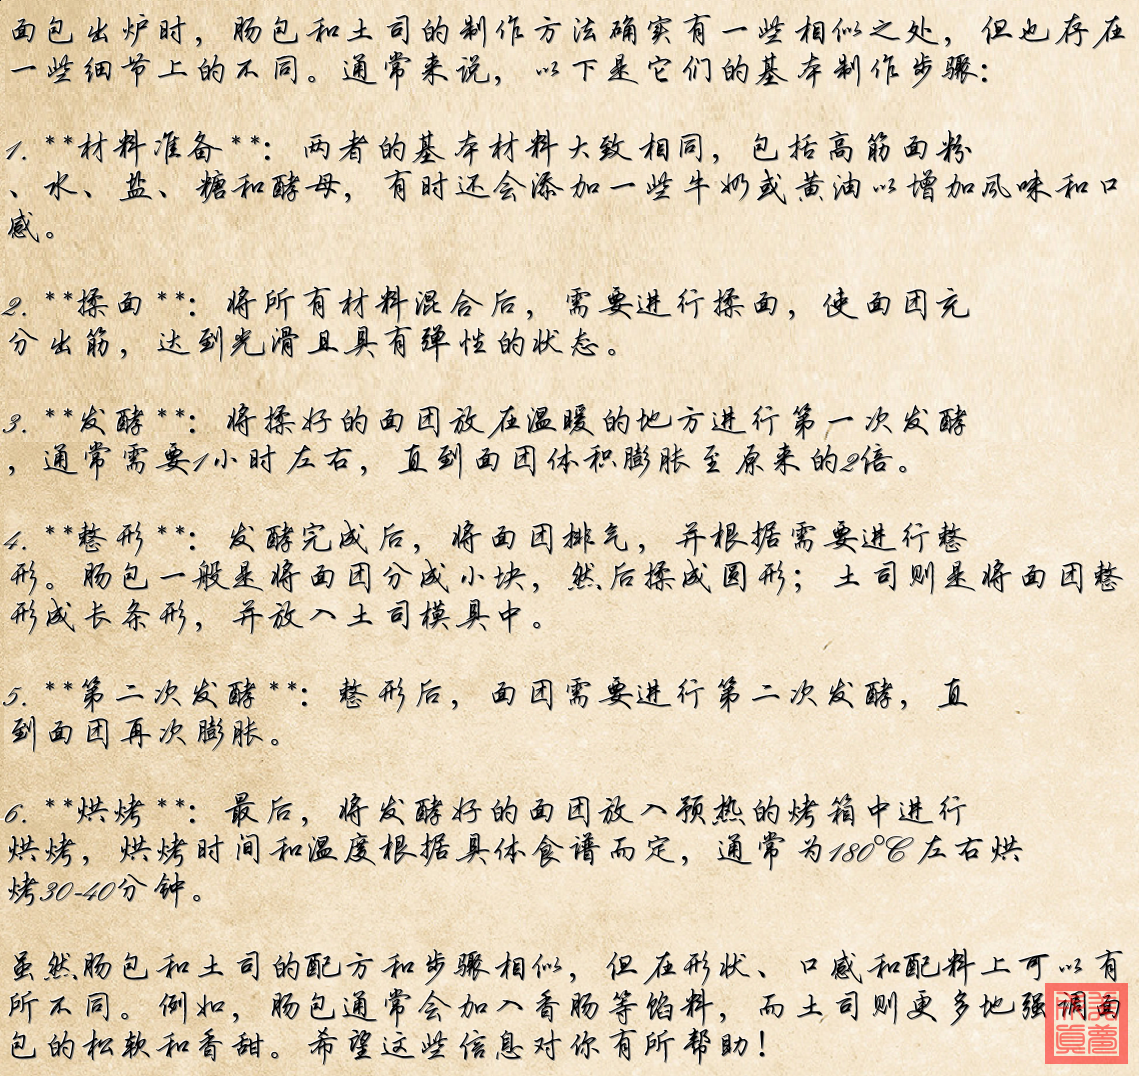 面包出炉时，肠包和土司的制作方法确实有一些相似之处，但也存在
一些细节上的不同。通常来说，以下是它们的基本制作步骤：
1. **材料准备**：两者的基本材料大致相同，包括高筋面粉
、水、盐、糖和酵母，有时还会添加一些牛奶或黄油以增加风味和口
感。
2. **揉面**：将所有材料混合后，需要进行揉面，使面团充
分出筋，达到光滑且具有弹性的状态。
3. **发酵**：将揉好的面团放在温暖的地方进行第一次发酵
，通常需要1小时左右，直到面团体积膨胀至原来的2倍。
4. **整形**：发酵完成后，将面团排气，并根据需要进行整
形。肠包一般是将面团分成小块，然后揉成圆形；土司则是将面团整
形成长条形，并放入土司模具中。
5. **第二次发酵**：整形后，面团需要进行第二次发酵，直
到面团再次膨胀。
6. **烘烤**：最后，将发酵好的面团放入预热的烤箱中进行
烘烤，烘烤时间和温度根据具体食谱而定，通常为180°C左右烘
烤30-40分钟。
虽然肠包和土司的配方和步骤相似，但在形状、口感和配料上可以有
所不同。例如，肠包通常会加入香肠等馅料，而土司则更多地强调面
包的松软和香甜。希望这些信息对你有所帮助！